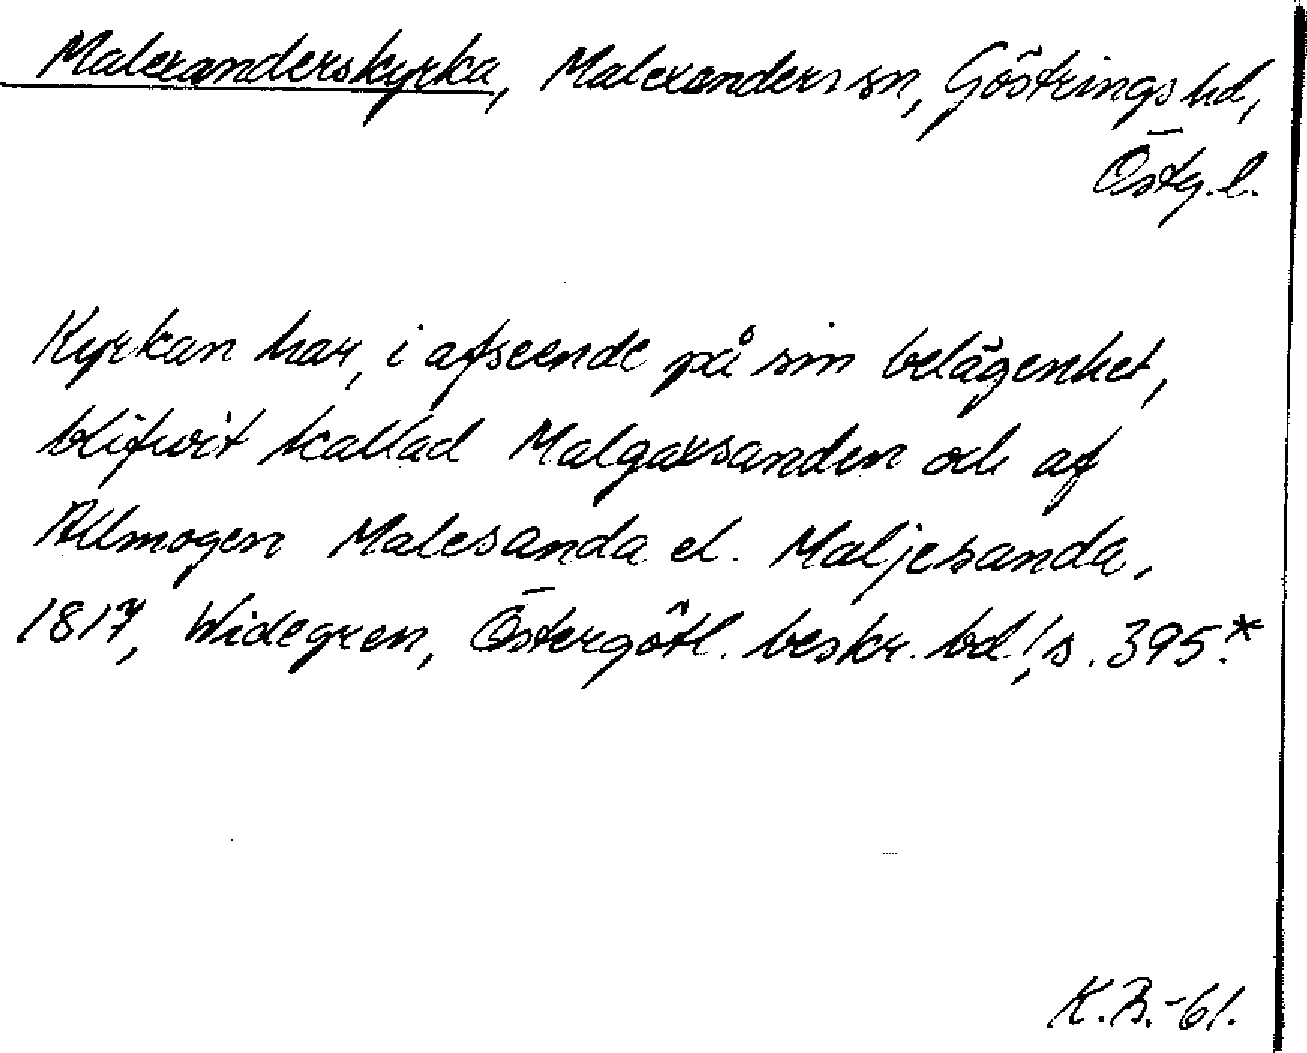 Malexanderskyrka, Malexanders sn, Göstrings hd,
Östg. l.
Kyrkan har, i afseende på sin belägenhet,
blifwit kallad Malgaxsanden och af
Allmogen Malesanda el. Maljesanda,
1817, Widegren, Östergötl. beskr. bd 1, s. 395.*
K.B.-61.